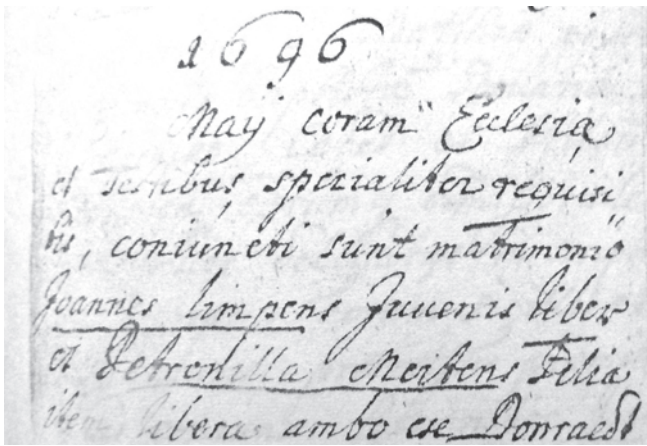 1696
May coram Ecclesia
et testibus specialiter requisi
tis, coniuncti sunt matrimonio
Joannes limpens Juvenis liber
et Petronilla Meitens Filia
item libera ambo ex Donraedt